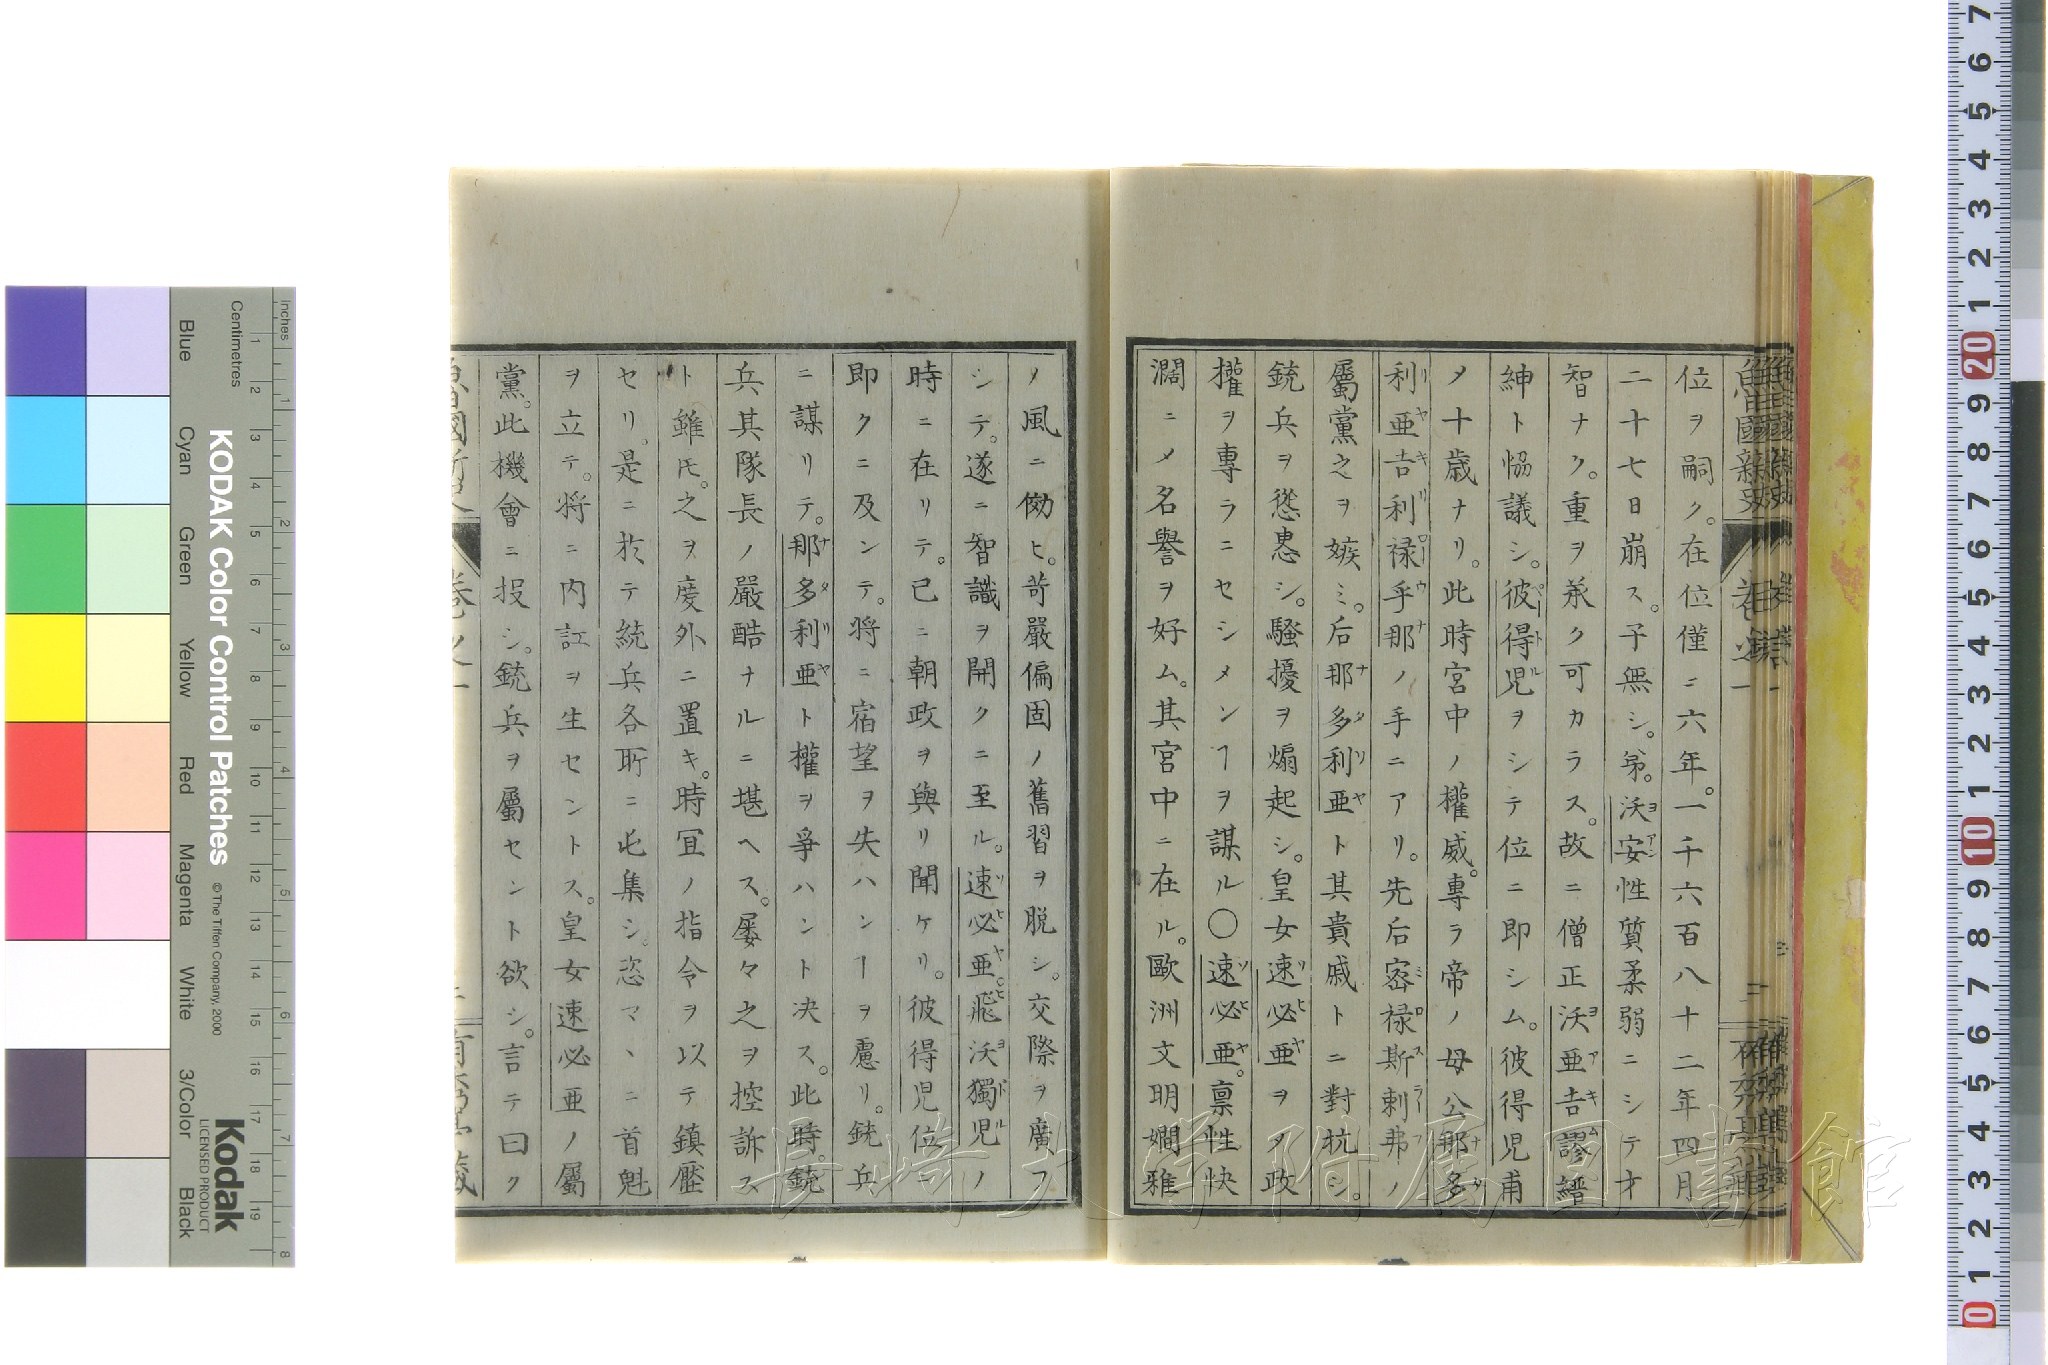 位ヲ嗣ク。在位僅ニ六年。一千六百八十二年四月
二十七日崩ス。子無シ。弟。沃安性質柔弱ニシテ才
智ナク。重ヲ承ク可カラス。故ニ僧正沃亜吉謬縉
紳ト恊議シ。彼得児ヲシテ位ニ即シム。彼得児甫
メ十歳ナリ。此時宮中ノ權威。專ラ帝ノ母公那多
利亜吉利禄乎那ノ手ニアリ。先后宻禄斯剌弗ノ
屬黨之ヲ嫉ミ。后那多利亜ト其貴戚トニ對抗シ。
銃兵ヲ慫慂シ。騒擾ヲ煽起シ。皇女速必亜ヲメ政
權ヲ專ラニセシメンヿヲ謀ル〇速必亜。禀性快
濶ニメ名譽ヲ好ム。其宮中ニ在ル。歐洲文明嫺雅
ノ風ニ傚ヒ。苛嚴偏固ノ舊習ヲ脱シ。交際ヲ廣フ
シテ。遂ニ智識ヲ開クニ至ル。速必亜。飛沃獨児ノ
時ニ在リテ。已ニ朝政ヲ與リ聞ケリ。彼得児位ニ
即クニ及ンテ。将ニ宿望ヲ失ハンヿヲ慮リ。銃兵
ニ謀リテ。那多利亜ト權ヲ爭ハント决ス。此時。銃
兵其隊長ノ嚴酷ナルニ堪ヘス。屡々之ヲ控訴ス
ト雖𪜈。之ヲ度外ニ置キ。時冝ノ指令ヲ以テ鎮壓
セリ。是ニ於テ統兵各所ニ屯集シ。恣マヽニ首魁
ヲ立テ。将ニ内訌ヲ生セントス。皇女速必亜ノ屬
黨。此機會ニ投シ。銃兵ヲ屬セント欲シ。言テ曰ク
KODAK Color Control Patches
© The Tiffen Company, 2000
Kodak
LICENSED PRODUCT
Inches
Centimetres
Blue
Cyan
Green
Yellow
Red
Magenta
White
3/Color
Black
長崎大学附属図書館